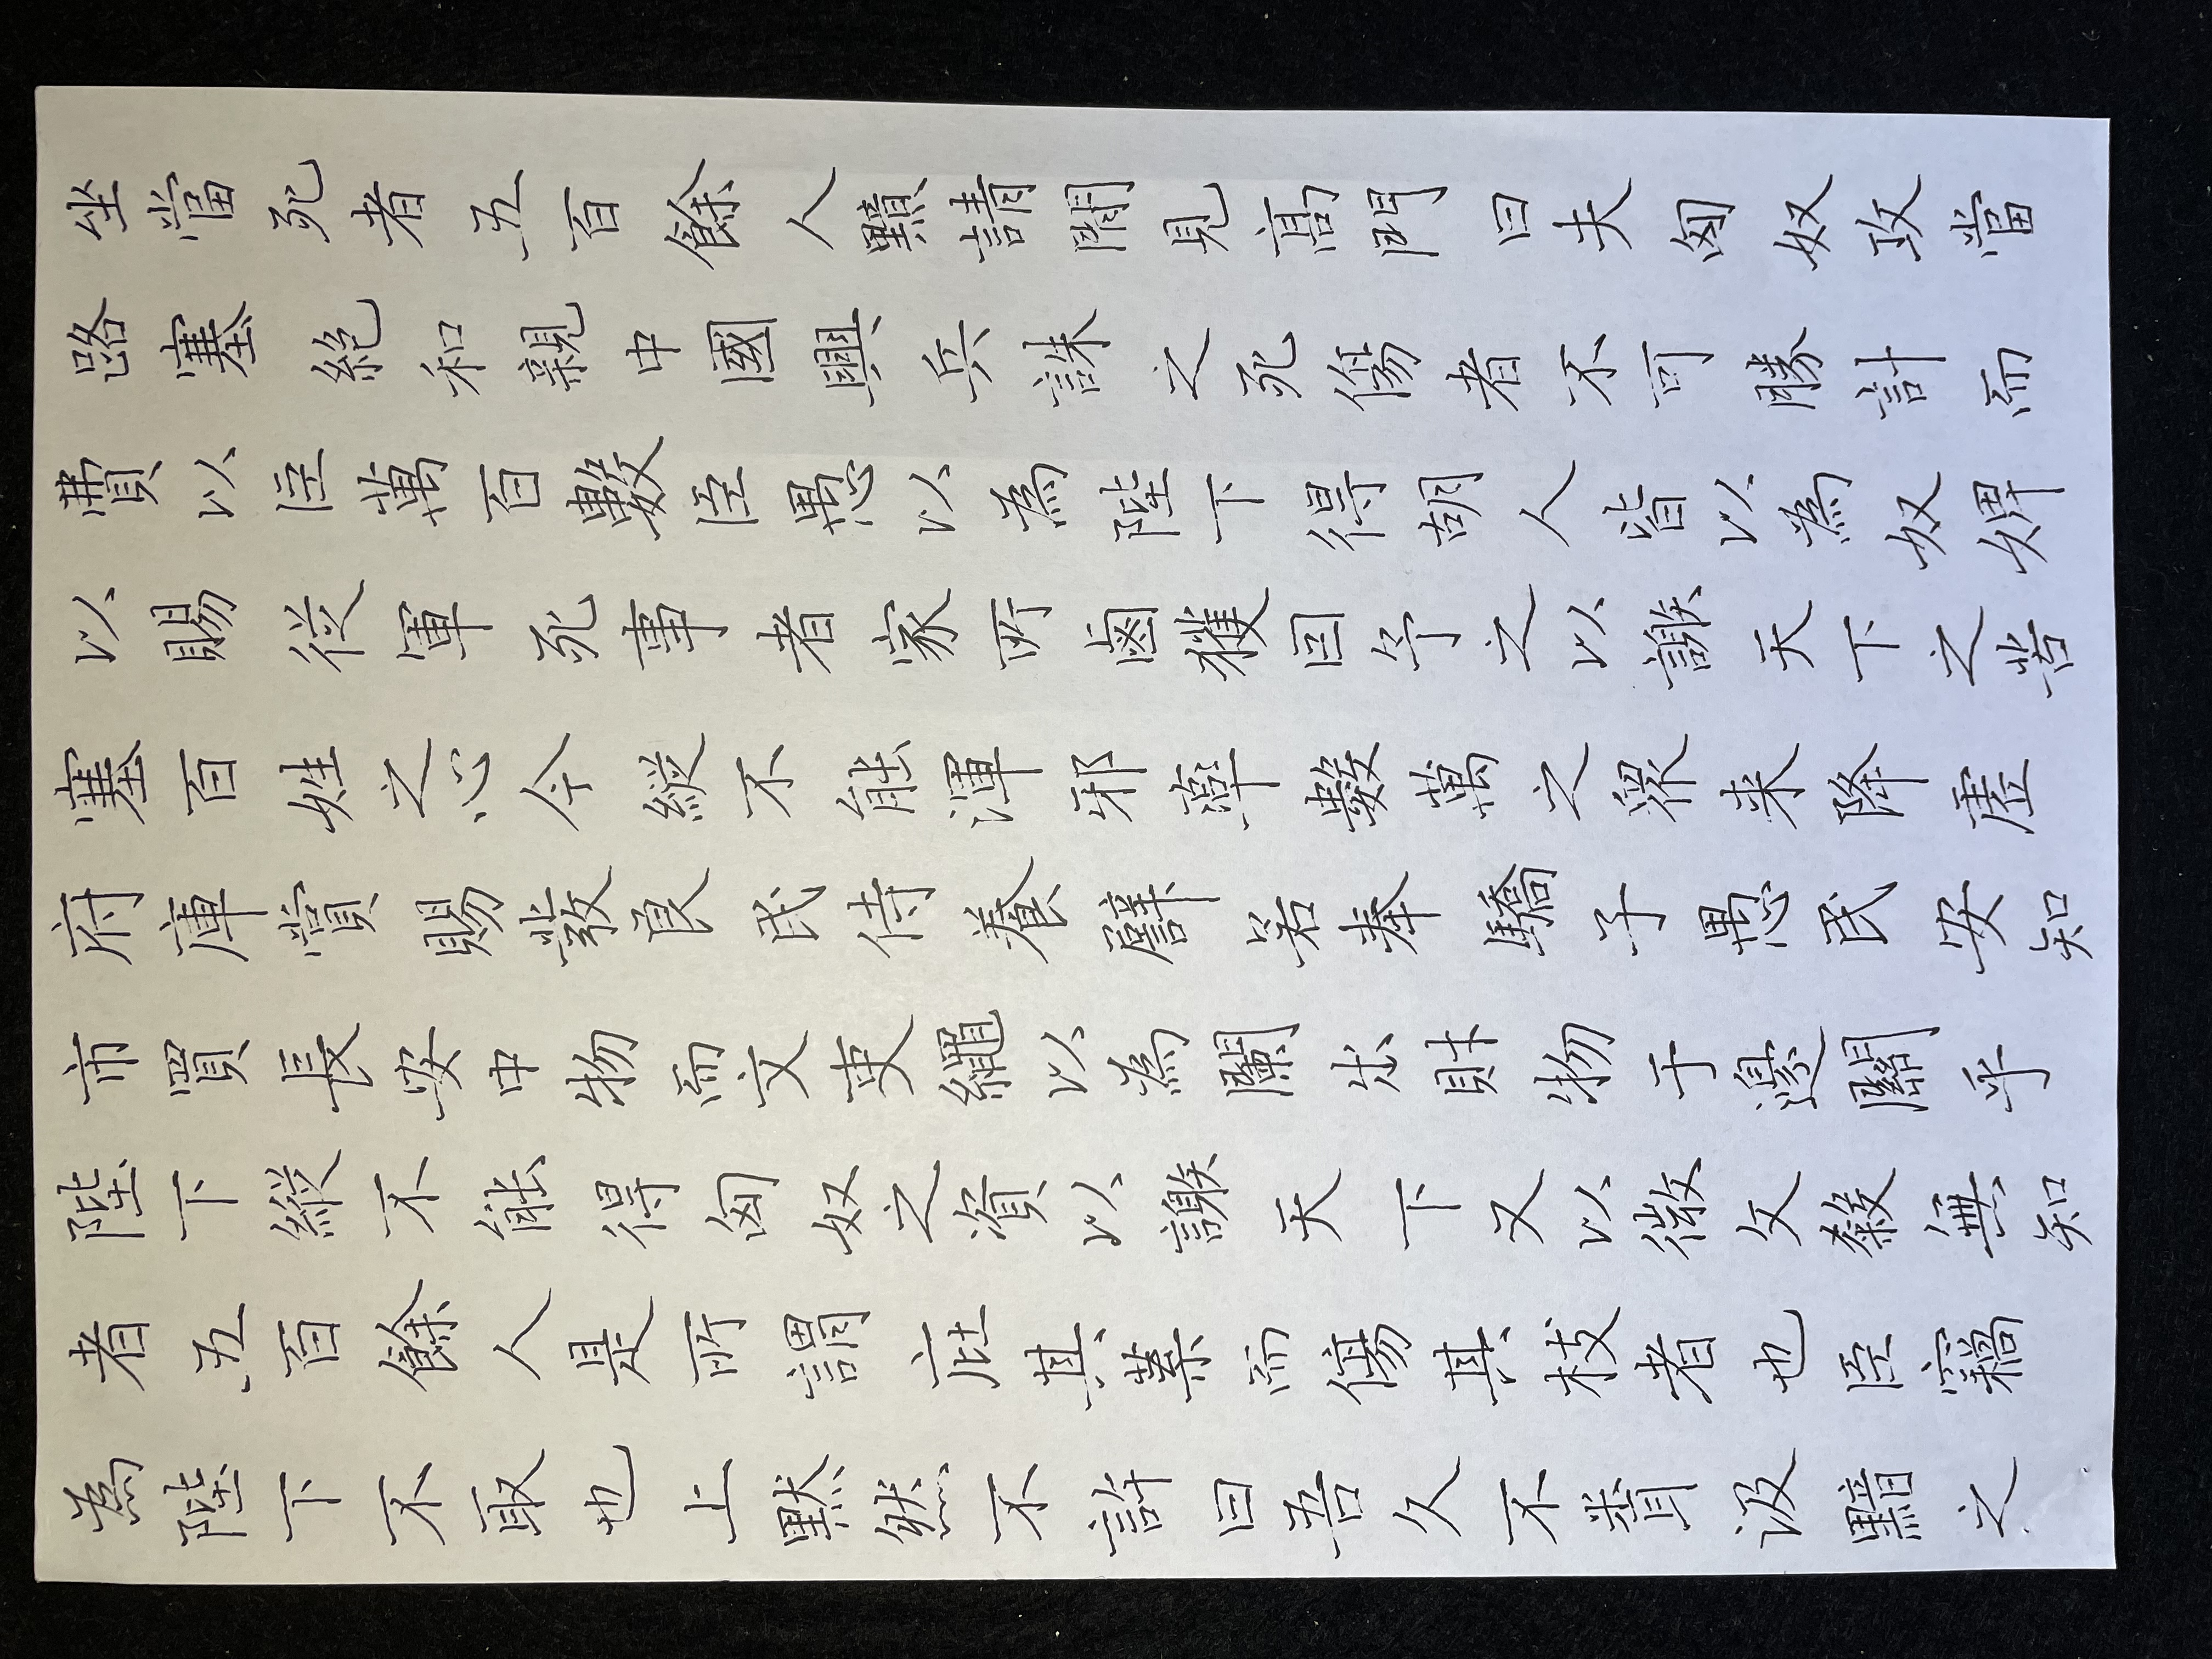 坐當死者五百餘人黯請閒見高門曰夫匈奴攻當
路塞絕和親中國興兵誅之死傷者不可勝計而
費以臣萬百數臣愚以為陛下得胡人皆以為奴婢
以賜從軍死事者家所鹵獲因予之以謝天下之苦
塞百姓之心今縱不能渾邪率數萬之眾来降虛
府庫賞賜發良民侍養譬若奉驕子愚民安知
市買長安中物而文吏繩以為闌出財物于邊關乎
陛下縱不能得匈奴之資以謝天下又以微文殺無知
者五百餘人是所謂庇其葉而傷其枝者也臣竊
為陛下不取也上默然不許曰吾久不聞汲黯之